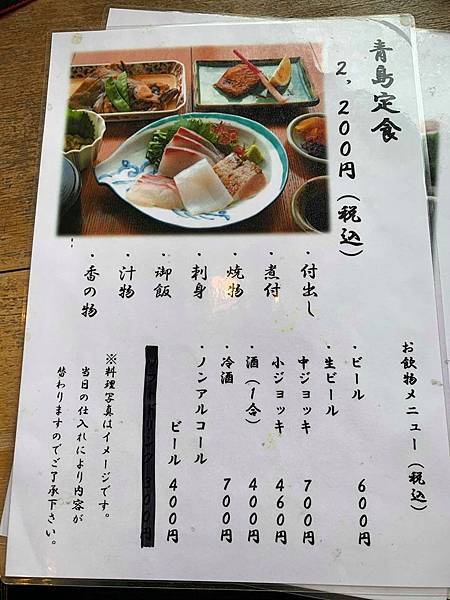 青島定食
2,200円(税込)
・付出し
・煮付
・焼物
・刺身
・御飯
・汁物
・香の物
お飲物メニュー(税込)
・ビール 600円
・生ビール
中ジョッキ 700円
小ジョッキ 460円
・酒(1合) 400円
・冷酒 700円
・ノンアルコール
ビール 400円
※料理写真はイメージです。
当日の仕入れにより内容が
替わりますのでご了承下さい。